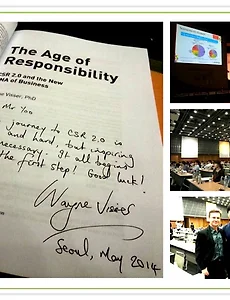 The Age of
Responsibility
CSR 2.0 and the New
DNA of Business
Wayne Visser, PhD
Mr Yoo
journey to CSR 2.0 is
and hard, but inspiring
necessary. It all begins
the first step! Good luck!
Wayne Visser
Seoul, May 2014